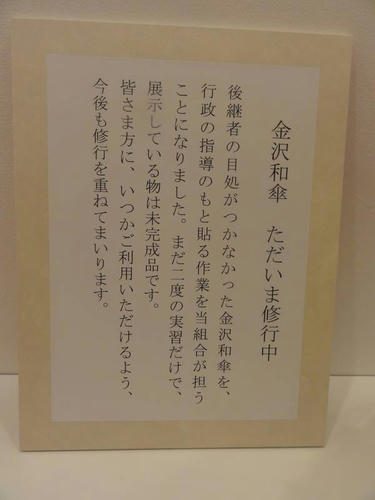 金沢和傘　ただいま修行中
後継者の目処がつかなかった金沢和傘を、
行政の指導のもと貼る作業を当組合が担う
ことになりました。まだ二度の実習だけで、
展示している物は未完成品です。
皆さま方に、いつかご利用いただけるよう、
今後も修行を重ねてまいります。